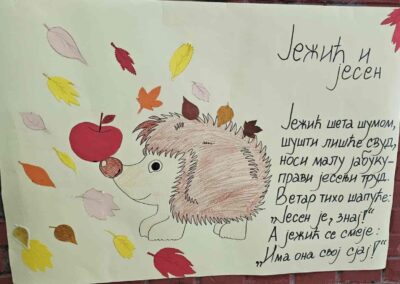 Јежић и
јесен
Јежић шета шумом,
шушти лишће свуд,
носи малу јабуку-
прави јесењи труд.
Ветар тихо шапуће:
„Јесен је, знај!“
А јежић се смеје:
„Има она свој сјај!“